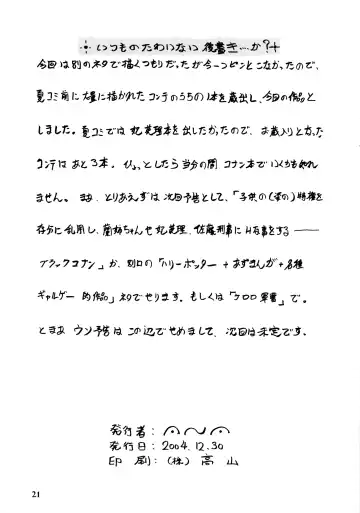 いつものたわいない後書き…か?
今回は別のネタで描くつもりだったが今一つピンとこなかったので、
夏コミ前に大量に描かれたコンテのうちの1本を蔵出し、今回の作品と
しました。夏コミでは妃英理本を出したかったので、お蔵入りとなった
コンテはあと3本。ひょっとしたら当分の間コナン本でいくかもしれ
ません。まぁ、とりあえずは次回予告として、「子供の(姿の)特権を
存分に乱用し、蘭姉ちゃんや妃英理、佐藤刑事にH有事をする――
ブラックコナン」か、別口の「ハリーポッター+あずまんが+各種
ギャルゲー的作品」ネタでやります。もしくは「ケロロ軍曹」で。
とまぁウソ予告はこの辺でやめまして、次回は未定です。
発行者:
発行日:2004.12.30
印 刷:(株) 高山
21